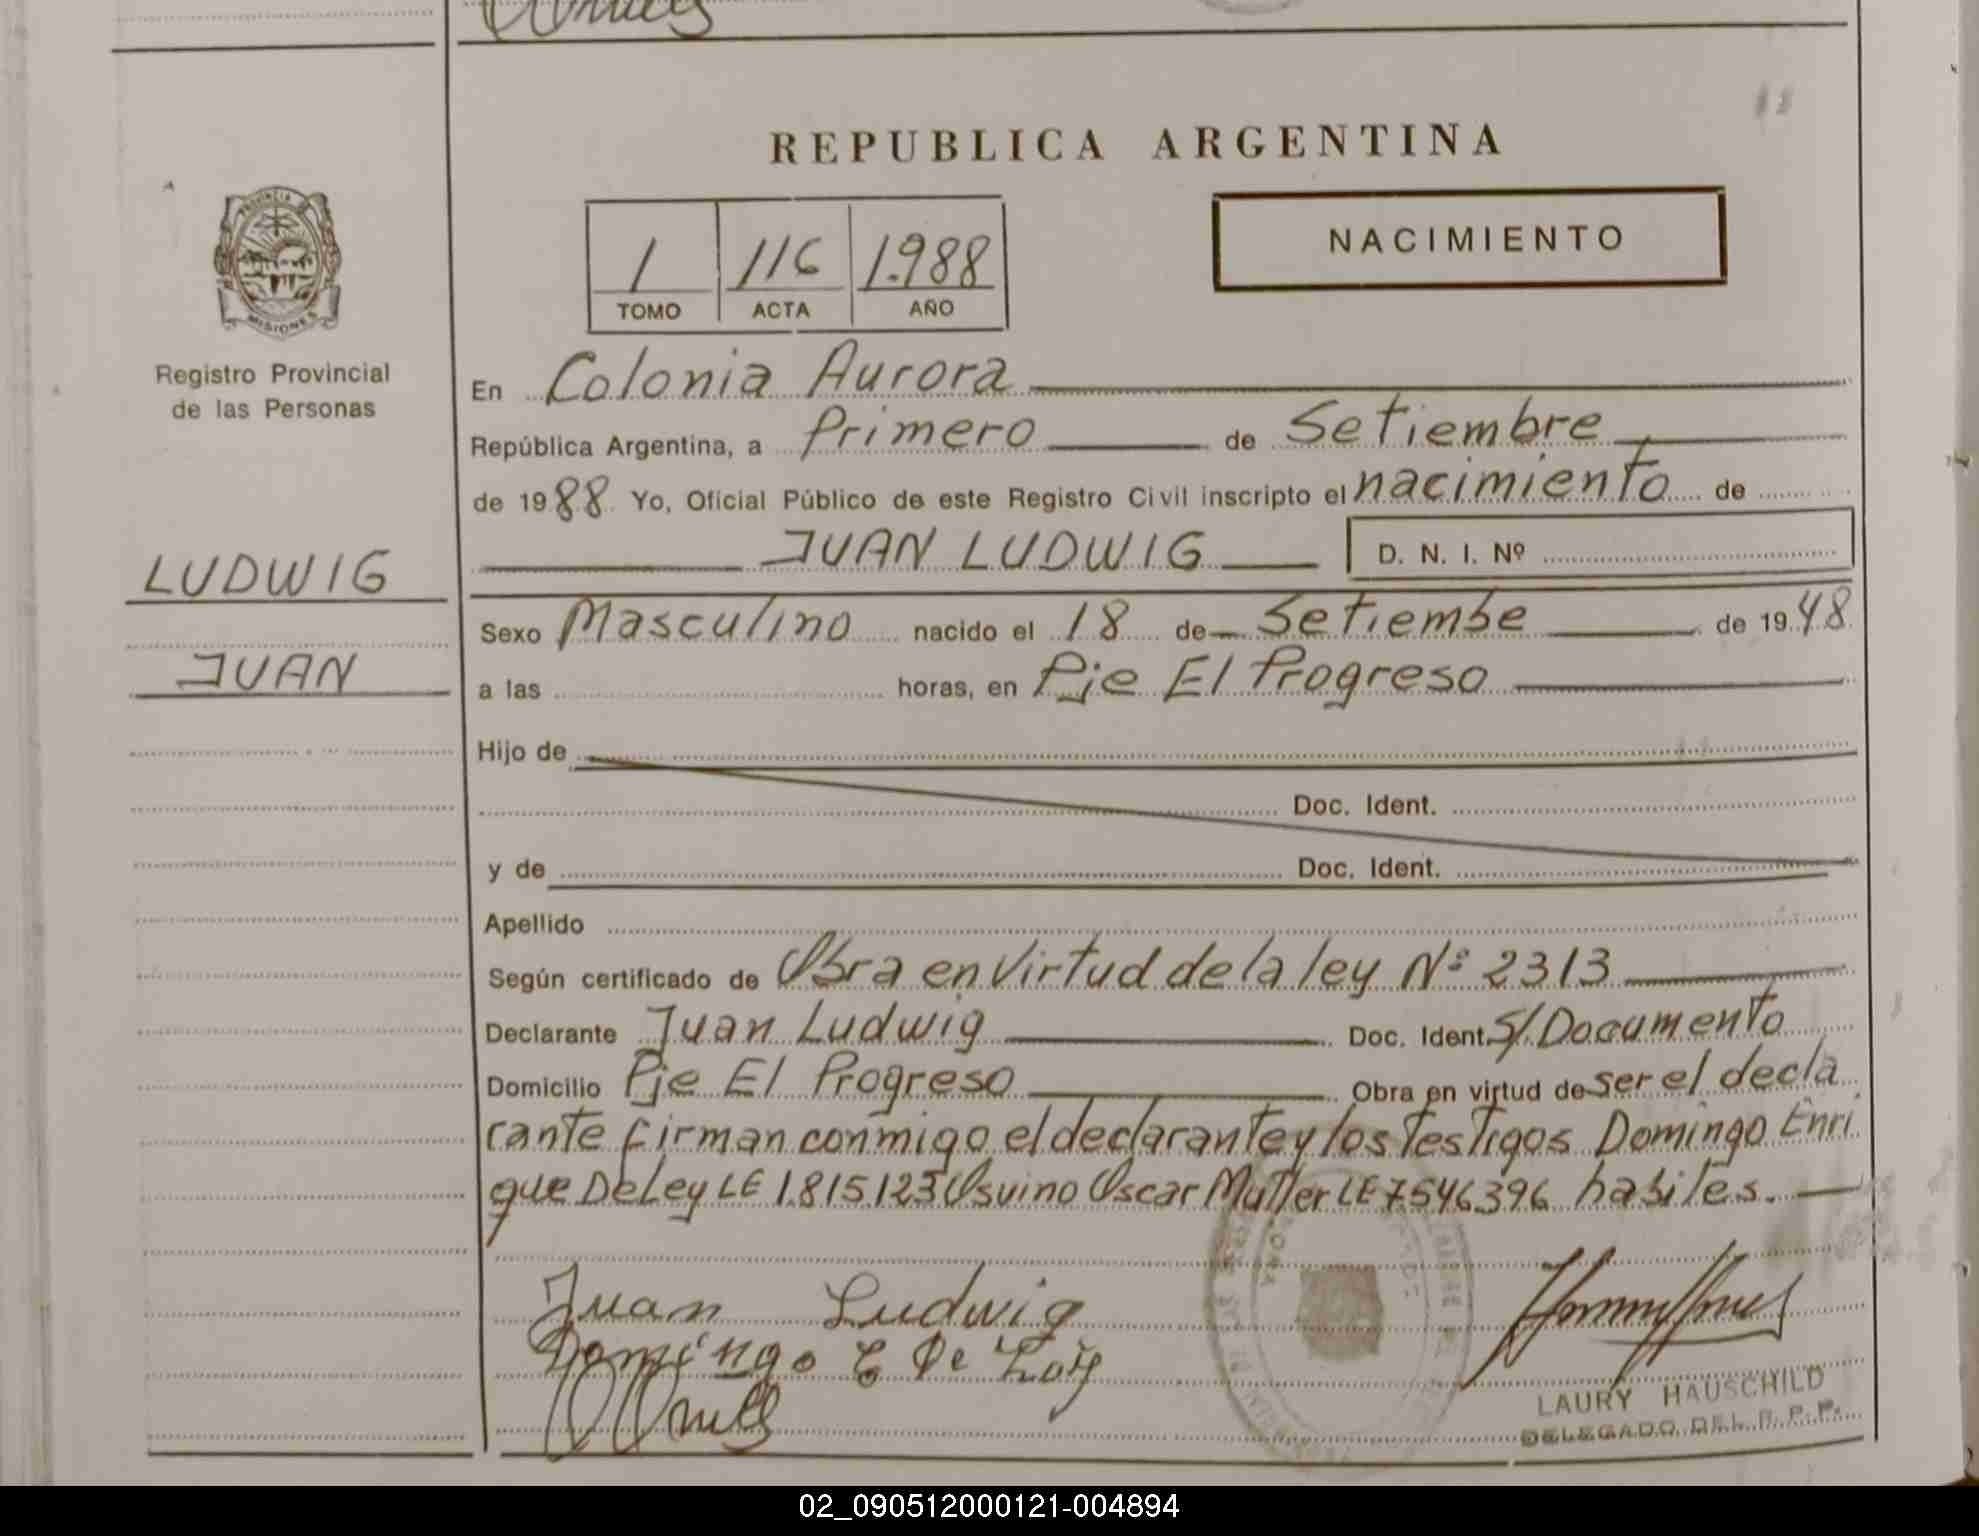 REPUBLICA ARGENTINA
PROVINCIA DE
MISIONES
1 116 1.988
TOMO ACTA AÑO
NACIMIENTO
Registro Provincial
de las Personas
LUDWIG
JUAN
En Colonia Aurora
República Argentina, a Primero de Setiembre
de 1988 Yo, Oficial Público de este Registro Civil inscripto el nacimiento de
JUAN LUDWIG D. N. I. Nº
Sexo Masculino nacido el 18 de Setiembe de 1948
a las horas, en Pje El Progreso
Hijo de
Doc. Ident.
y de Doc. Ident.
Apellido
Según certificado de Obra en Virtud de la ley Nº 2313
Declarante Juan Ludwig Doc. Ident. S/. Documento
Domicilio Pje El Progreso Obra en virtud de ser el decla
rante firman conmigo el declarante y los testigos Domingo Enri
que DeLey LE 1.815.123 Osvino Oscar Muller LE 7546.396 habiles.
Juan Ludwig
Domingo E De Loy
LAURY HAUSCHILD
DELEGADO DEL R. P. P.
02_090512000121-004894